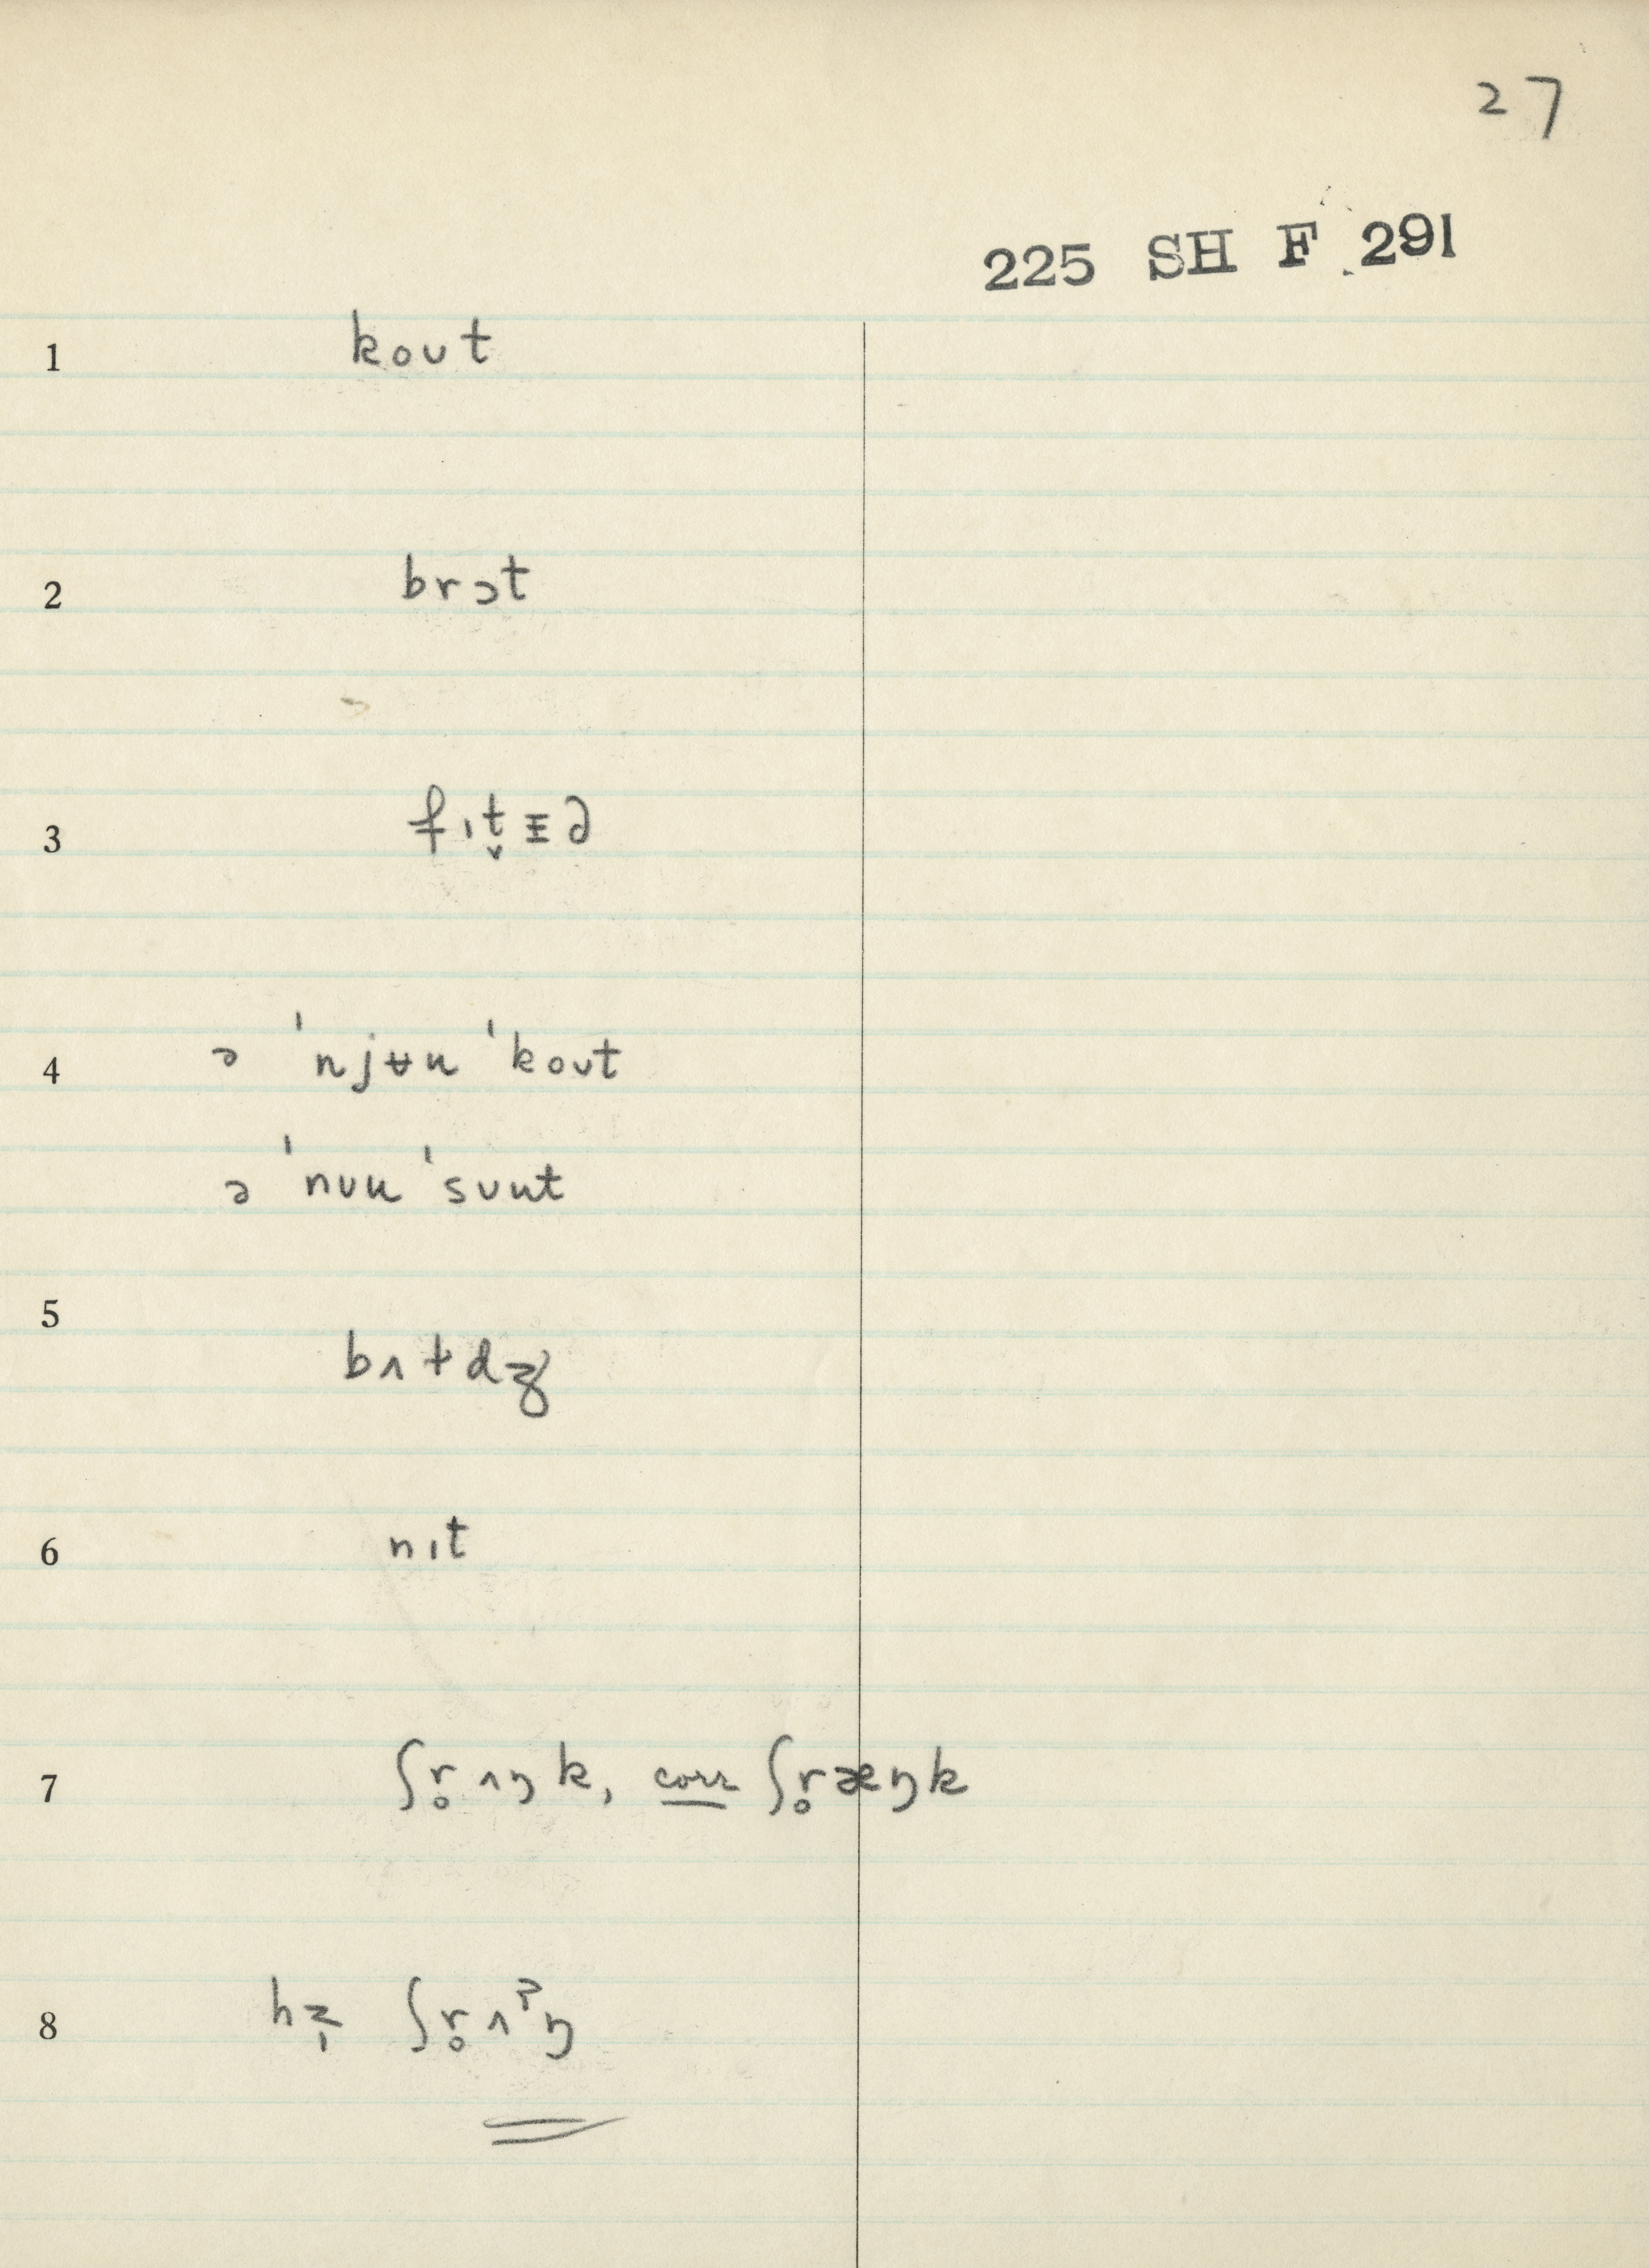 27
225 SH F 291
1 koʊt
2 brɔt
3 fɪt̬ɪ̵ə
4 ə 'njʉu 'koʊt
ə 'nʊu 'sʊut
5 bʌɫdʒ
6 nɪt
7 ʃr̥ʌŋk, corr ʃr̥æŋk
8 ʃr̥ʌˀŋ